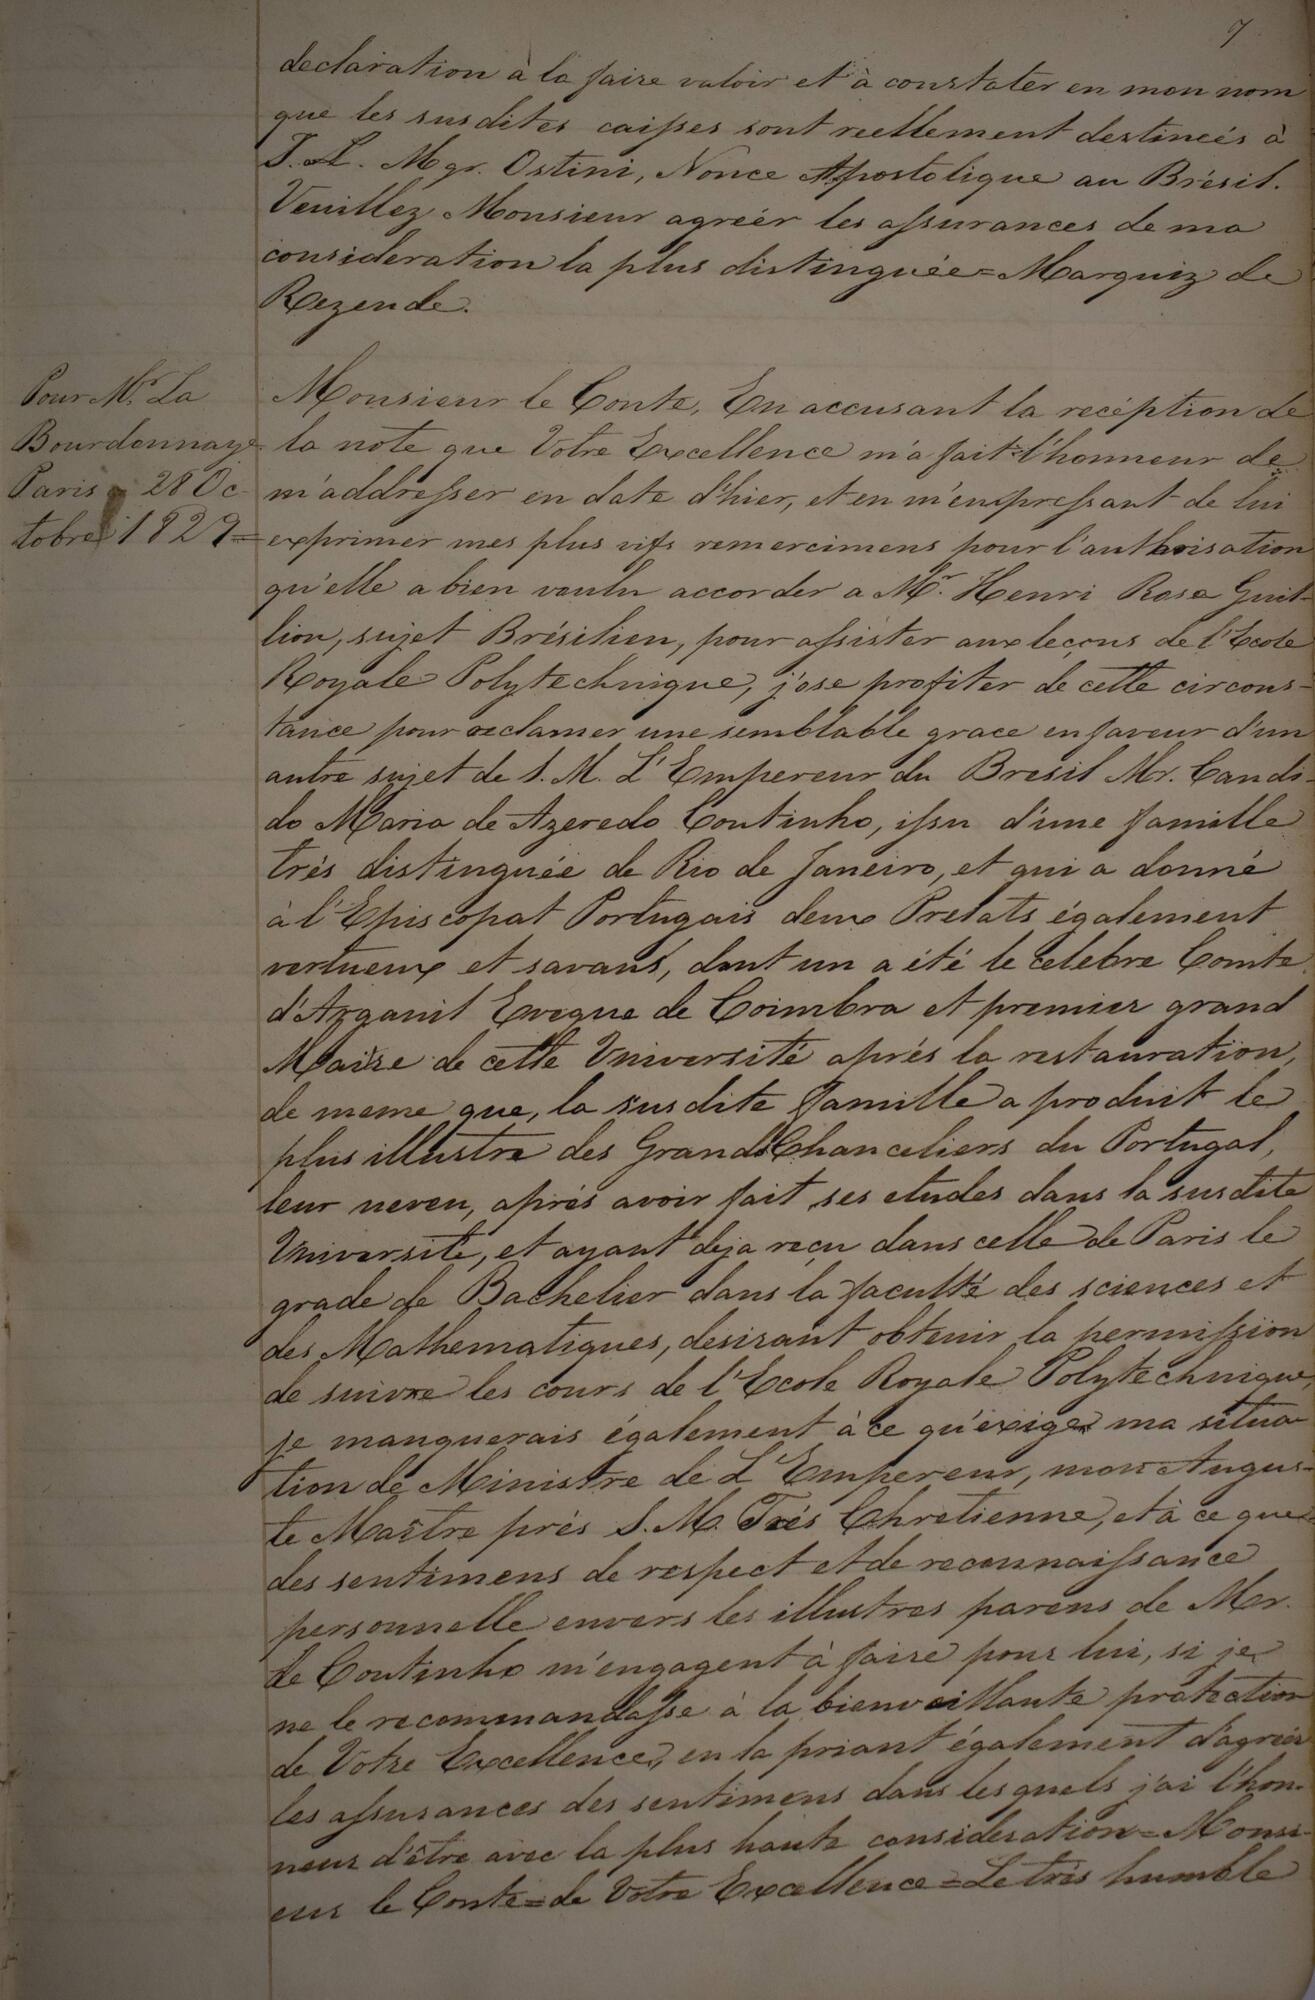 7
declaration à la faire valoir et à constater en mon nom
que les susdites caisses sont reellement destineés à
Mgr. Ostini, Nonce Apostolique au Brésil.
Veuillez Monsieur agréer les assurances de ma
consideration la plus distinguée = Marquiz de
Rezende.
Pour Mr. La
Bourdonnaye
Paris 28 Oc-
tobre 1829 =
Monsieur le Conte, En accusant la recéption de
la note que Votre Excellence m'a fait l'honneur de
m'addresser en date d'hier, et en m'enpressant de lui
exprimer mes plus vifs remercimens pour l'authorisation
qu'elle a bien voulu accorder a Mr. Henri Rose Guil-
lion, sujet Brésilien, pour assister aux leçons de l'Ecole
Royale Polytechnique, j'ose profiter de cette circons-
tance pour reclamer une semblable grace en faveur d'un
autre sujet de S. M. L'Empereur du Bresil Mr. Candi-
do Maria de Azeredo Coutinho, issu d'une famille
trés distinguée de Rio de Janeiro, et qui a donné
à l'Episcopat Portugais deux Prelats également
vertueux et savans, dont un a été le celebre Comte
d'Arganil Eveque de Coimbra et premier grand
Maire de cette Université aprés la restauration,
de meme que, la susdite famille a produit le
plus illustre des Grands Chanceliers du Portugal,
leur neveu, aprés avoir fait ses etudes dans la susdite
Université, et ayant deja reçu dans celle de Paris le
grade de Bachelier dans la faculté des sciences et
des Mathematiques, desirant obtenir la permission
de suivre les cours de l'Ecole Royale Polytechnique,
je manquerais également à ce qu'exige ma situa-
tion de Ministre de L'Empereur, mon Augus-
te Maître prés S. M. Trés Chretienne, et à ce que
des sentimens de respect et de reconnaissance
personnelle envers les illustres parens de Mer.
de Coutinho m'engagent à faire pour lui, si je
ne le recommandasse à la bienveillante protection
de Votre Excellence, en la priant également d'agréer
les assurances des sentimens dans les quels j'ai l'hon-
neur d'être avec la plus haute consideration = Monsi-
eur le Conte = de Votre Excellence = Le trés humble